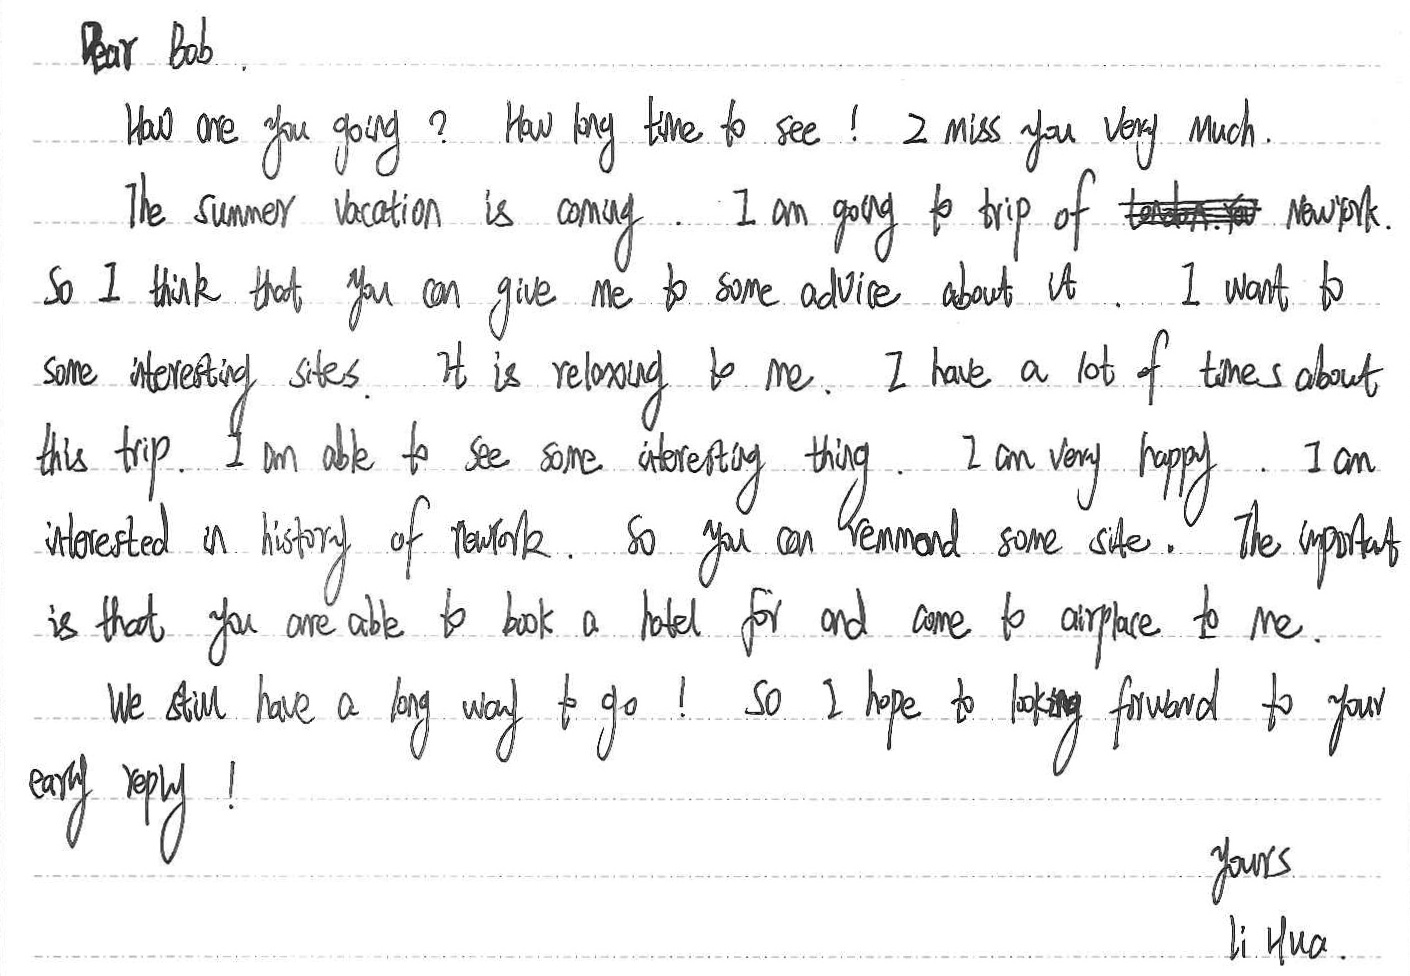 Dear Bob.
How are you going? How long time to see! I miss you very much.
The summer vacation is coming. I am going to trip of Newyork.
So I think that you can give me to some advice about it. I want to
some interesting sites. It is relaxing to me. I have a lot of times about
this trip. I am able to see some interesting thing. I am very happy. I am
interested in history of newYork. So you can remmond some site. The importat
is that you are able to book a hotel for and come to airplace to me.
We still have a long way to go! So I hope to looking forward to your
early reply!
yours
li Hua.